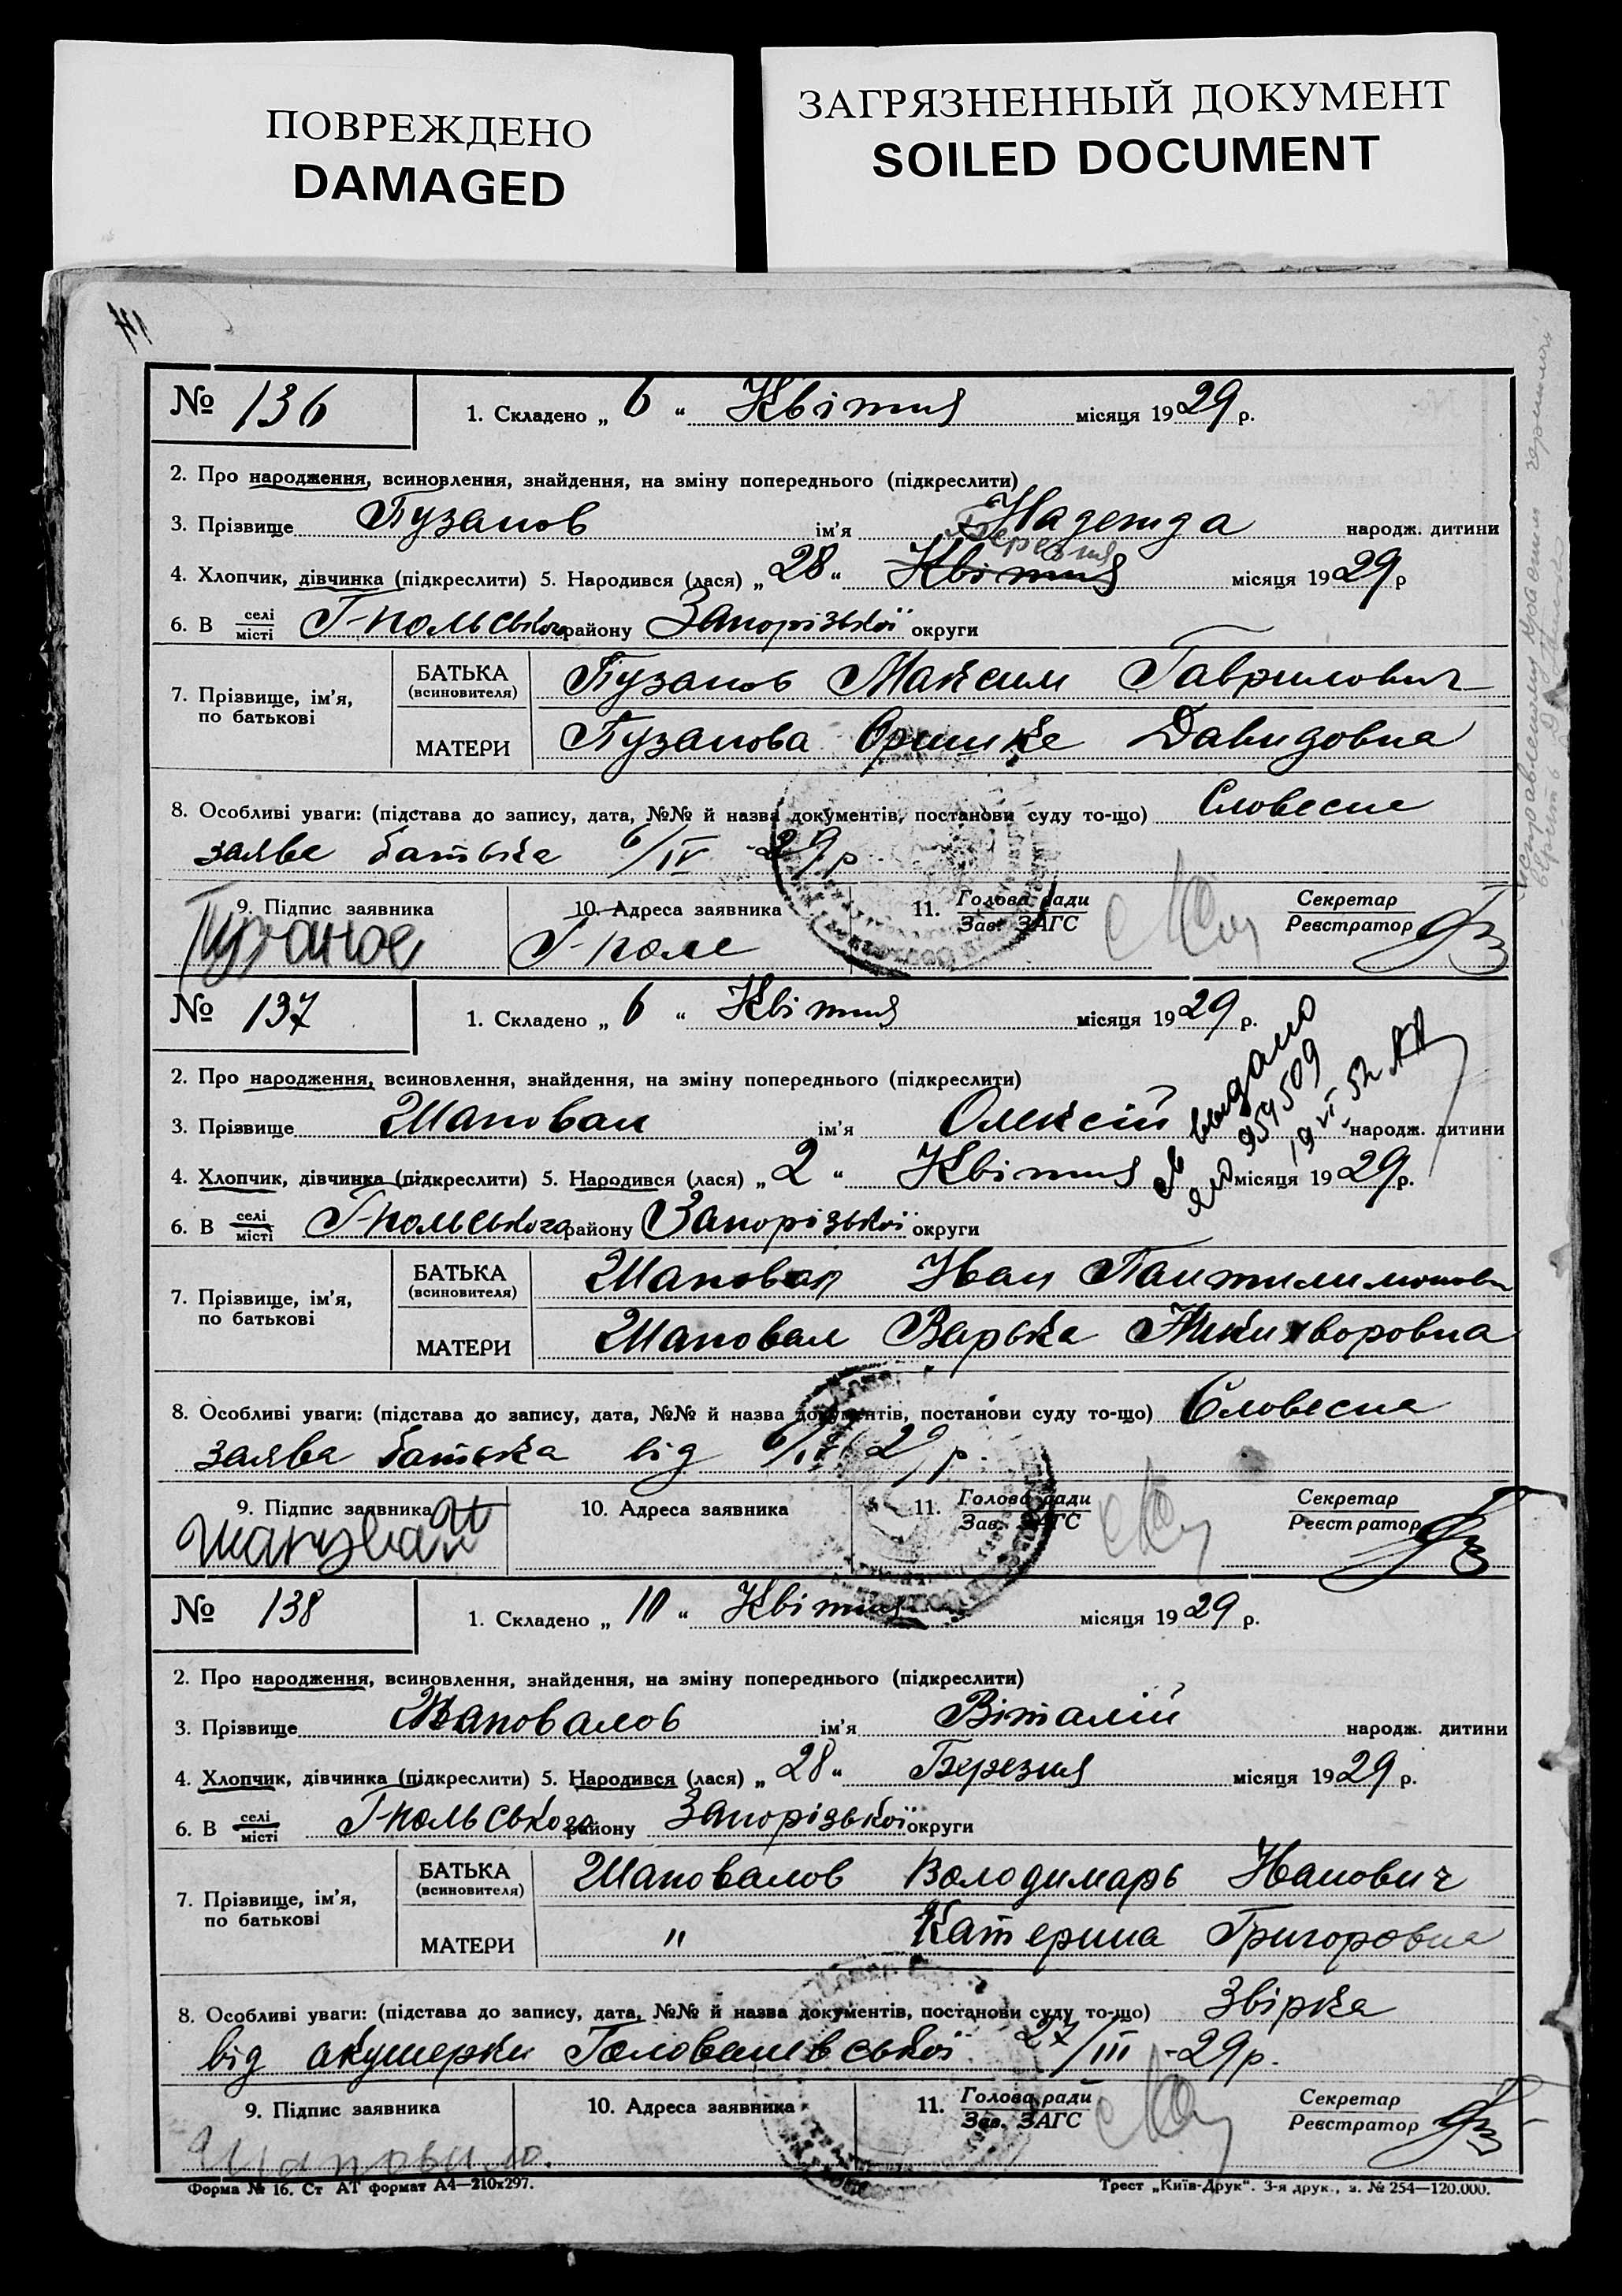 ПОВРЕЖДЕНО
DAMAGED
ЗАГРЯЗНЕННЫЙ ДОКУМЕНТ
SOILED DOCUMENT
№ 136 1. Складено „ 6 “ Квітня місяця 1929 р.
2. Про народження, всиновлення, знайдення, на зміну попереднього (підкреслити)
3. Прізвище Пузанов ім'я Надежда народж. дитини
Березня
4. Хлопчик, дівчинка (підкреслити) 5. Народився (лася) „ 28 “ Квітня місяця 1929 р
6. В селі/місті Г-польського району Запорізької округи
7. Прізвище, ім'я, по батькові
БАТЬКА (всиновителя) Пузанов Максим Гаврилович
МАТЕРИ Пузанова Оришка Давидовна
8. Особливі уваги: (підстава до запису, дата, №№ й назва документів, постанови суду то-що) Словесна
заява батька 6/IV 29 р.
9. Підпис заявника 10. Адреса заявника 11. Голова ради/Зав. ЗАГС Секретар/Реєстратор
Пузанов Г-поле
№ 137 1. Складено „ 6 “ Квітня місяця 1929 р.
2. Про народження, всиновлення, знайдення, на зміну попереднього (підкреслити)
3. Прізвище Шаповал ім'я Олексій народж. дитини
выдано
954509
19 VI 52
4. Хлопчик, дівчинка (підкреслити) 5. Народився (лася) „ 2 “ Квітня місяця 1929 р.
6. В селі/місті Г-польського району Запорізької округи
7. Прізвище, ім'я, по батькові
БАТЬКА (всиновителя) Шаповал Иван Пантилимонов
МАТЕРИ Шаповал Варька Никихворовна
8. Особливі уваги: (підстава до запису, дата, №№ й назва документів, постанови суду то-що) Словесна
заява батька від 6/IV 29 р.
9. Підпис заявника 10. Адреса заявника 11. Голова ради/Зав. ЗАГС Секретар/Реєстратор
№ 138 1. Складено „ 10 “ Квітня місяця 1929 р.
2. Про народження, всиновлення, знайдення, на зміну попереднього (підкреслити)
3. Прізвище Шаповалов ім'я Віталій народж. дитини
4. Хлопчик, дівчинка (підкреслити) 5. Народився (лася) „ 28 “ Березня місяця 1929 р.
6. В селі/місті Г-польського району Запорізької округи
7. Прізвище, ім'я, по батькові
БАТЬКА (всиновителя) Шаповалов Володимарь Иванович
МАТЕРИ " Катерина Григоровна
8. Особливі уваги: (підстава до запису, дата, №№ й назва документів, постанови суду то-що) Звірка
від акушерки Головашевської 27/III -29 р.
9. Підпис заявника 10. Адреса заявника 11. Голова ради/Зав. ЗАГС Секретар/Реєстратор
Форма № 16. Ст АТ формат А4—210х297. Трест „Київ-Друк“. 3-я друк., з. № 254—120.000.